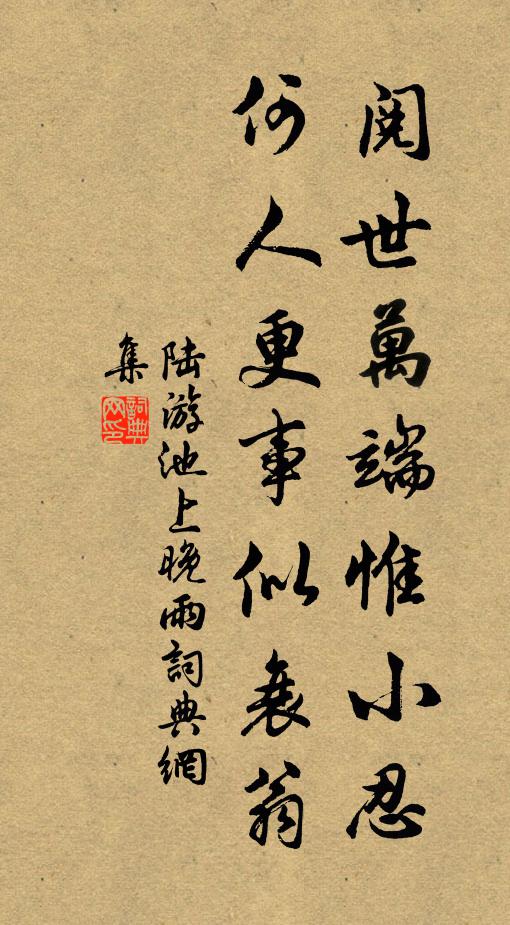 閱世萬端惟小忍
何人更事似衰翁
陆游池上晚雨詞典網
集
詞典网印